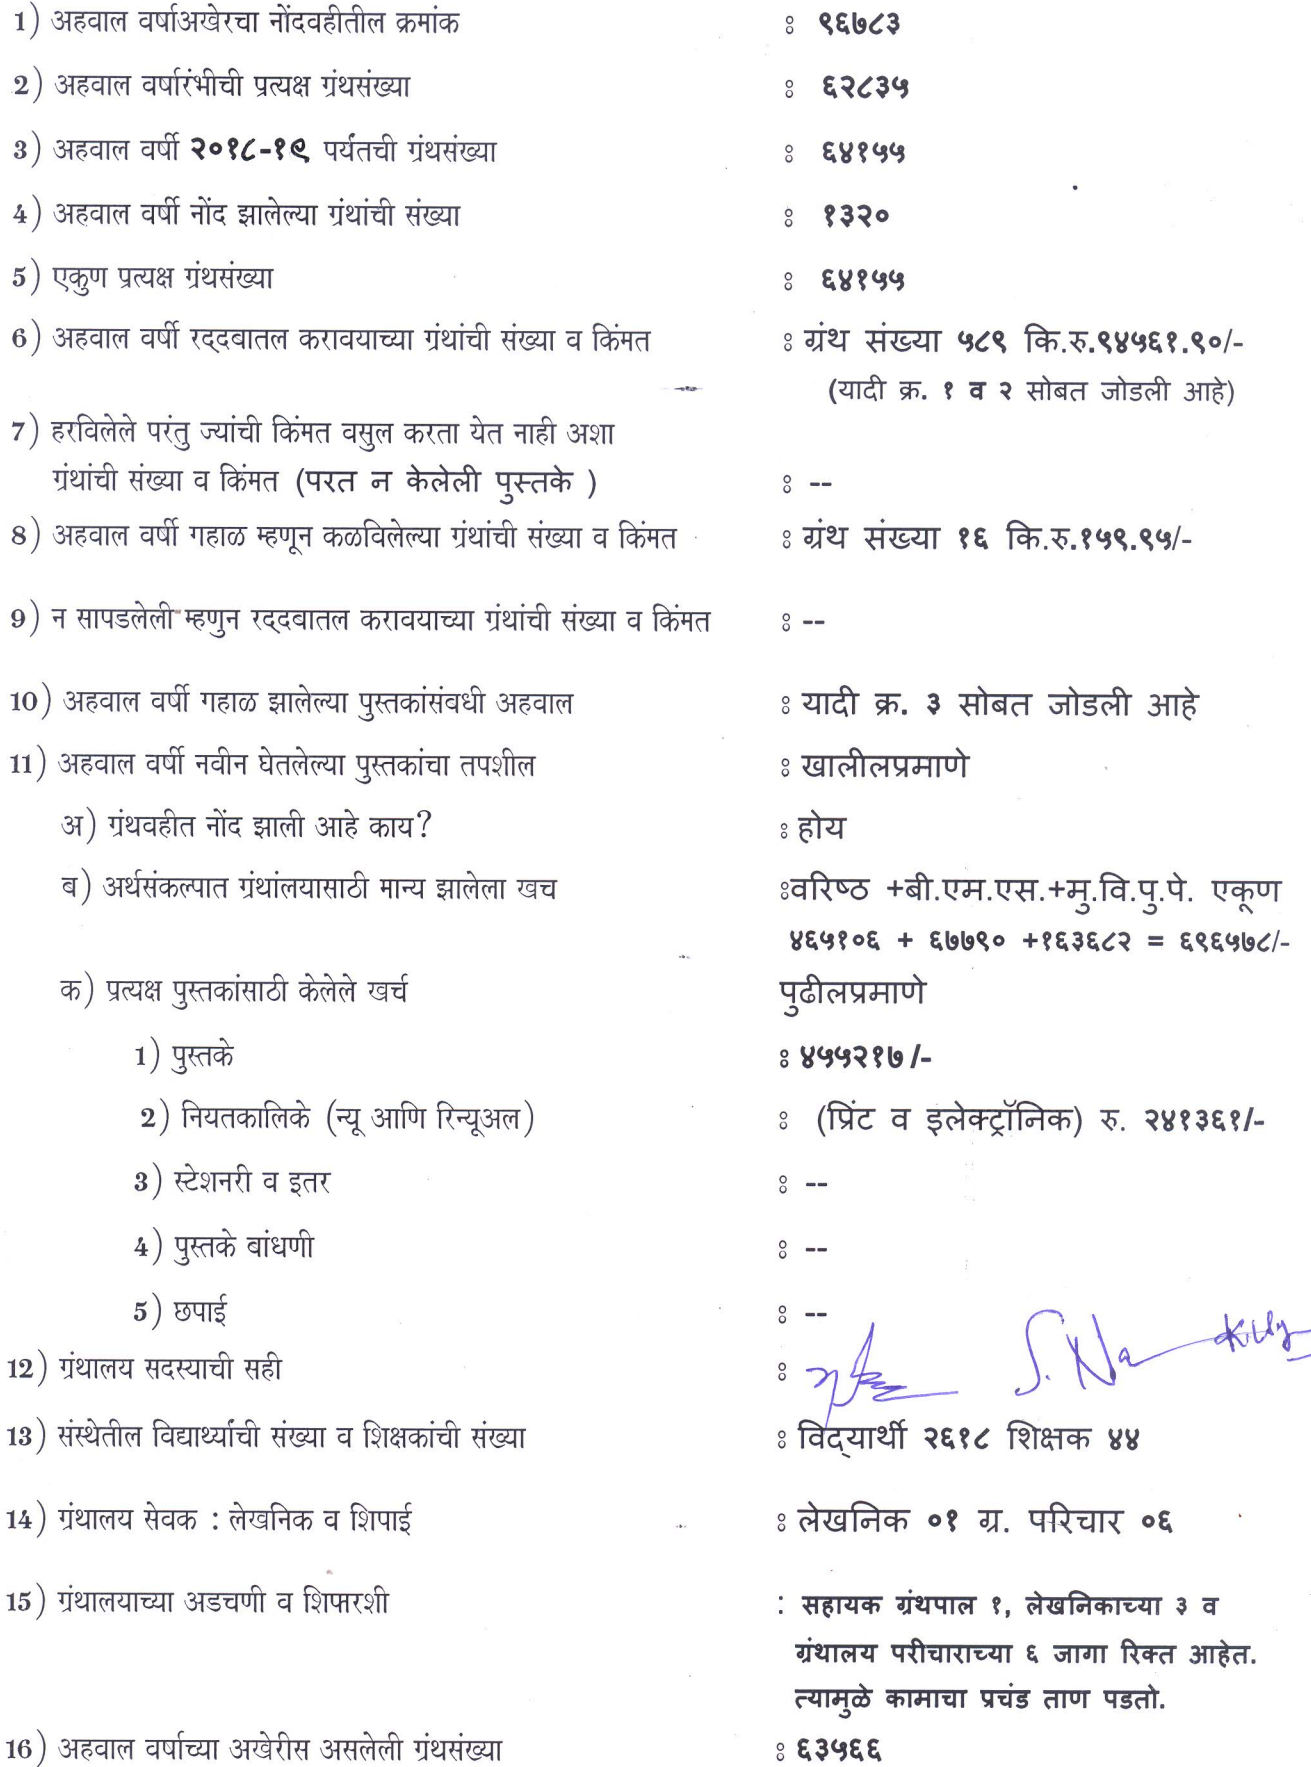 1) अहवाल वर्षाअखेरचा नोंदवहीतील क्रमांक : ९६७८३
2) अहवाल वर्षारंभीची प्रत्यक्ष ग्रंथसंख्या : ६२८३५
3) अहवाल वर्षी २०१८-१९ पर्यंतची ग्रंथसंख्या : ६४१५५
4) अहवाल वर्षी नोंद झालेल्या ग्रंथांची संख्या : १३२०
5) एकुण प्रत्यक्ष ग्रंथसंख्या : ६४१५५
6) अहवाल वर्षी रद्दबातल करावयाच्या ग्रंथांची संख्या व किंमत : ग्रंथ संख्या ५८९ कि.रु.९४५६१.९०/-
(यादी क्र. १ व २ सोबत जोडली आहे)
7) हरविलेले परंतु ज्यांची किंमत वसुल करता येत नाही अशा
ग्रंथांची संख्या व किंमत (परत न केलेली पुस्तके ) : --
8) अहवाल वर्षी गहाळ म्हणून कळविलेल्या ग्रंथांची संख्या व किंमत : ग्रंथ संख्या १६ कि.रु.१५९.९५/-
9) न सापडलेली म्हणुन रद्दबातल करावयाच्या ग्रंथांची संख्या व किंमत : --
10) अहवाल वर्षी गहाळ झालेल्या पुस्तकांसंवधी अहवाल : यादी क्र. ३ सोबत जोडली आहे
11) अहवाल वर्षी नवीन घेतलेल्या पुस्तकांचा तपशील : खालीलप्रमाणे
अ) ग्रंथवहीत नोंद झाली आहे काय? : होय
ब) अर्थसंकल्पात ग्रंथांलयासाठी मान्य झालेला खच :वरिष्ठ +बी.एम.एस.+मु.वि.पु.पे. एकूण
४६५१०६ + ६७७९० +१६३६८२ = ६९६५७८/-
क) प्रत्यक्ष पुस्तकांसाठी केलेले खर्च पुढीलप्रमाणे
1) पुस्तके : ४५५२१७/-
2) नियतकालिके (न्यू आणि रिन्यूअल) : (प्रिंट व इलेक्ट्रॉनिक) रु. २४१३६१/-
3) स्टेशनरी व इतर : --
4) पुस्तके बांधणी : --
5) छपाई : --
12) ग्रंथालय सदस्याची सही :
13) संस्थेतील विद्यार्थ्यांची संख्या व शिक्षकांची संख्या : विद्यार्थी २६१८ शिक्षक ४४
14) ग्रंथालय सेवक : लेखनिक व शिपाई : लेखनिक ०१ ग्र. परिचार ०६
15) ग्रंथालयाच्या अडचणी व शिफारशी : सहायक ग्रंथपाल १, लेखनिकाच्या ३ व
ग्रंथालय परीचाराच्या ६ जागा रिक्त आहेत.
त्यामुळे कामाचा प्रचंड ताण पडतो.
16) अहवाल वर्षाच्या अखेरीस असलेली ग्रंथसंख्या : ६३५६६